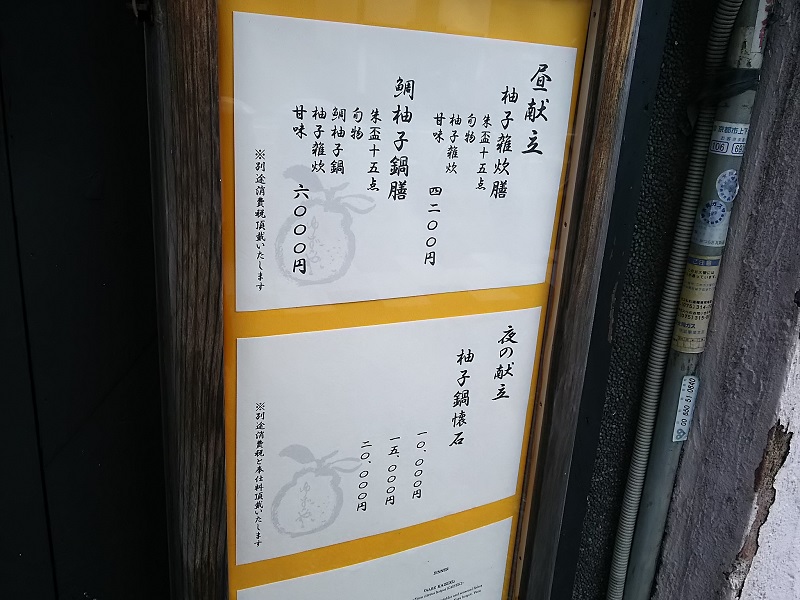 昼献立
柚子雑炊膳
朱盃十五点
旬物
柚子雑炊
甘味 四二〇〇円
鯛柚子鍋膳
朱盃十五点
旬物
鯛柚子鍋
柚子雑炊
甘味 六〇〇〇円
※別途消費税頂戴いたします
夜の献立
柚子鍋懐石
一〇、〇〇〇円
一五、〇〇〇円
二〇、〇〇〇円
※別途消費税と奉仕料頂戴いたします
DINNER